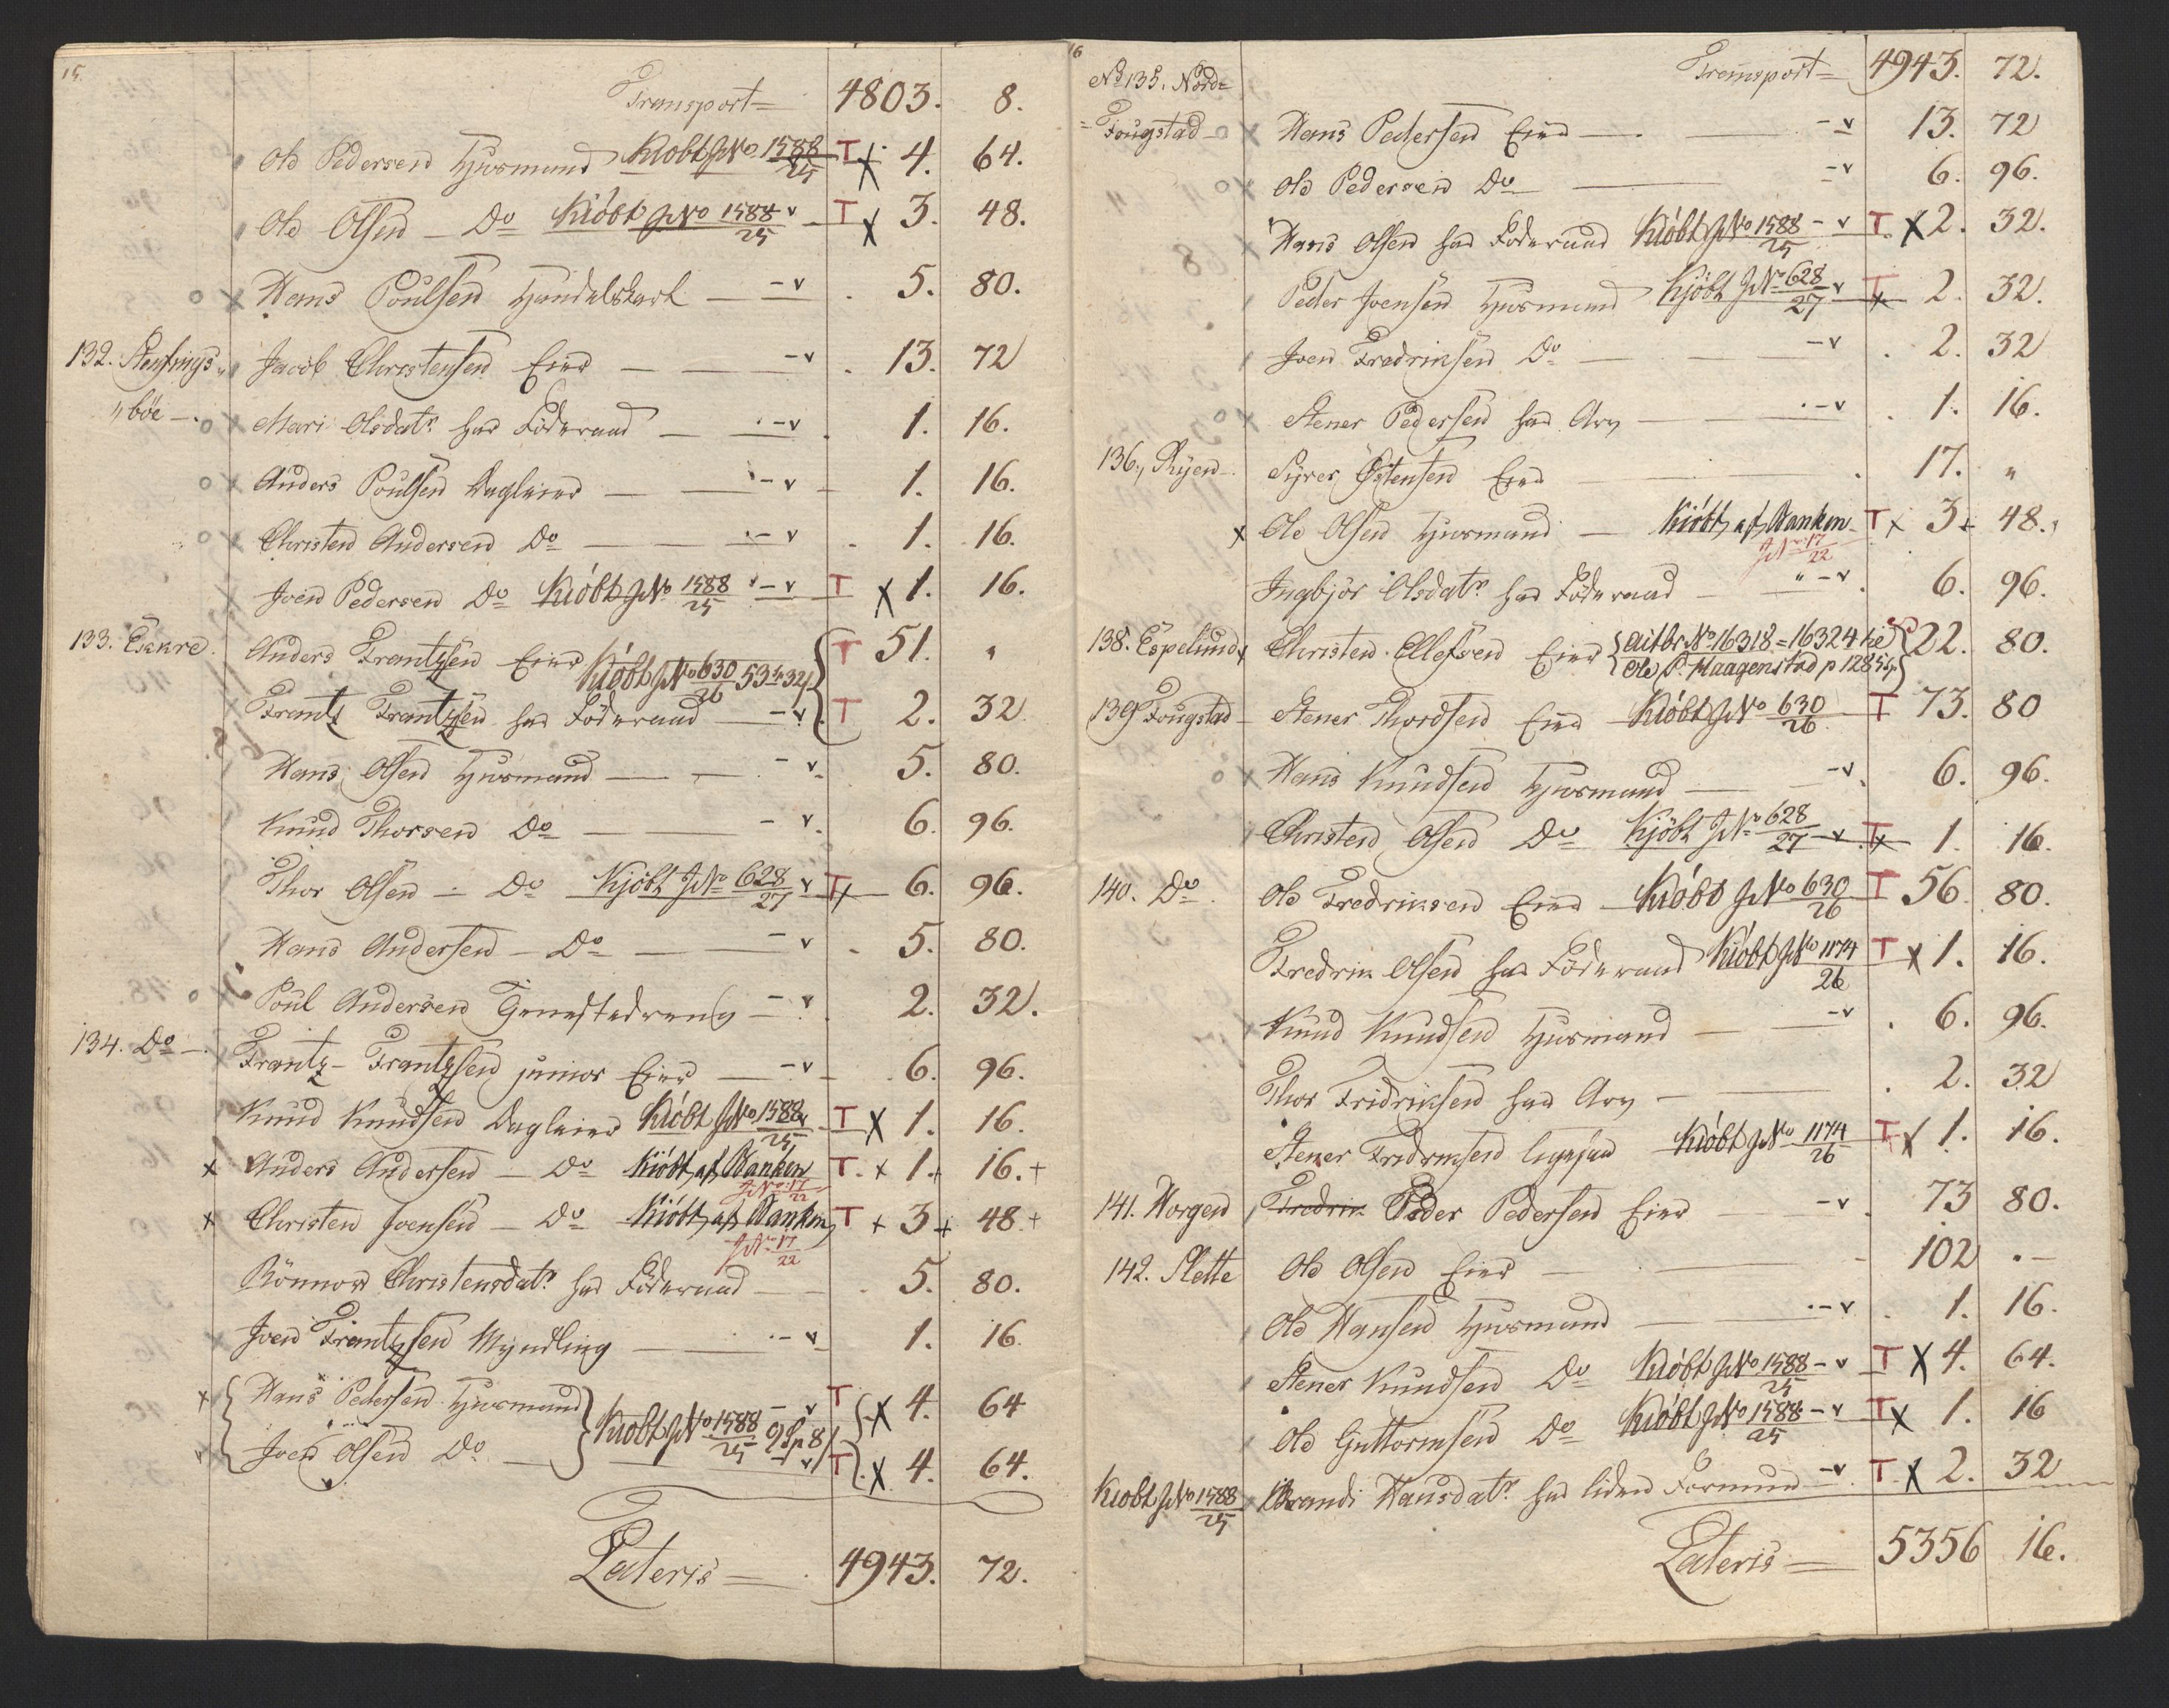 15.
Transport= 4803. 8.
Ole Pedersen Huusmand Kiøbt JNo 1588/25 T x 4. 64.
Ole Olsen — Do Kiøbt JNo 1588/25 v T x 3. 48.
o x Hans Poulsen Handelskarl — v 5. 80.
132. Stensrugs- Jacob Christensen Eier — v 13. 72
"böe —. o x Mari Olsdatr har Föderaad — v 1. 16.
o x Anders Poulsen Dagleier — v 1. 16.
o x Christen Andersen Do — v 1. 16.
Joen Pedersen Do Kiøbt JNo 1588/25 — v T x 1. 16.
133. Eskre. Anders Frantzen Eier T 51. "
Kiøbt JNo 630/26 53 32
Frantz Frantzen har Föderaad — v T 2. 32
Hans Olsen Huusmand — v 5. 80.
Knud Thorsen Do — v 6. 96.
Thor Olsen — Do Kjöbt JNo 628/27 v T x 6. 96.
Hans Andersen — Do — v 5. 80.
o Poul Andersen Tienestedreng — v 2. 32.
134. Do —. Frantz Frantzen junior Eier — v 6. 96.
Knud Knudsen Dagleier Kiøbt JNo 1588/25 v T x 1. 16.
x Anders Andersen — Do Kiöbt af Banken T x 1 + 16. +
JNo 17/22
x Christen Joensen — Do Kiöbt af Banken T + 3 + 48 +
JNo 17/22
Rönnow Christensdatr har Föderaad — 5. 80.
Joen Frantzen Myndling — v 1. 16.
x Hans Pedersen Huusmand — v T x 4. 64
Kiøbt JNo 1588/25 9 Sp 8
Joen Olsen Do — v T x 4. 64.
Lateris = 4943. 72.
16
No 135. Nord= Transport= 4943. 72.
=Fougstad — Hans Pedersen Eier — v 13. 72
Ole Pedersen Do — v 6. 96.
Hans Olsen har Foderaad Kiøbt JNo 1588/25 — v T x 2. 32.
Peder Joensen Huusmand Kjöbt JNo 628/27 v T x 2. 32.
Joen Fredriksen Do — v 2. 32
Stener Pedersen har Arv — v 1. 16.
136. Ryen — Syver Østensen Eier — 17. "
x Ole Olsen Huusmand — Kiöbt af Banken T x 3 + 48.
JNo 17/22
Ingbjör Olsdatr har Föderaad — v 6. 96.
138. Espelund x Christen Ellefsen Eier aitbr No 16318 = 16324 22. 80.
Ole P. Haagenstad p 128
139 Fougstad — Stener Thordsen Eier Kiøbt JNo 630/26 T 73. 80
Hans Knudsen Huusmand — v 6. 96.
Christen Olsen Do Kjöbt JNo 628/27 — v T x 1. 16.
140. Do Ole Fredriksen Eier — Kiøbt JNo 630/26 T 56. 80.
Fredrik Olsen har Föderaad Kiøbt JNo 1174/26 T x 1. 16.
Knud Knudsen Huusmand — v 6. 96.
Thor Fridriksen har Arv — 2. 32
Stener Fredriksen ligesaa Kiøbt JNo 1174/26 T x 1. 16.
141. Horgen Fredrik Peder Pedersen Eier — v 73 80.
142. Slette Ole Olsen Eier — 102 . —
Ole Hansen Huusmand — v 1. 16.
Stener Knudsen Do Kiøbt JNo 1588/25 — v T x 4. 64.
Ole Guttormsen Do Kiøbt JNo 1588/25 — v T x 1. 16
Kiøbt JNo 1588/25 Brandi Hansdatr har liden Formue — v T x 2. 32
Lateris = 5356 16.